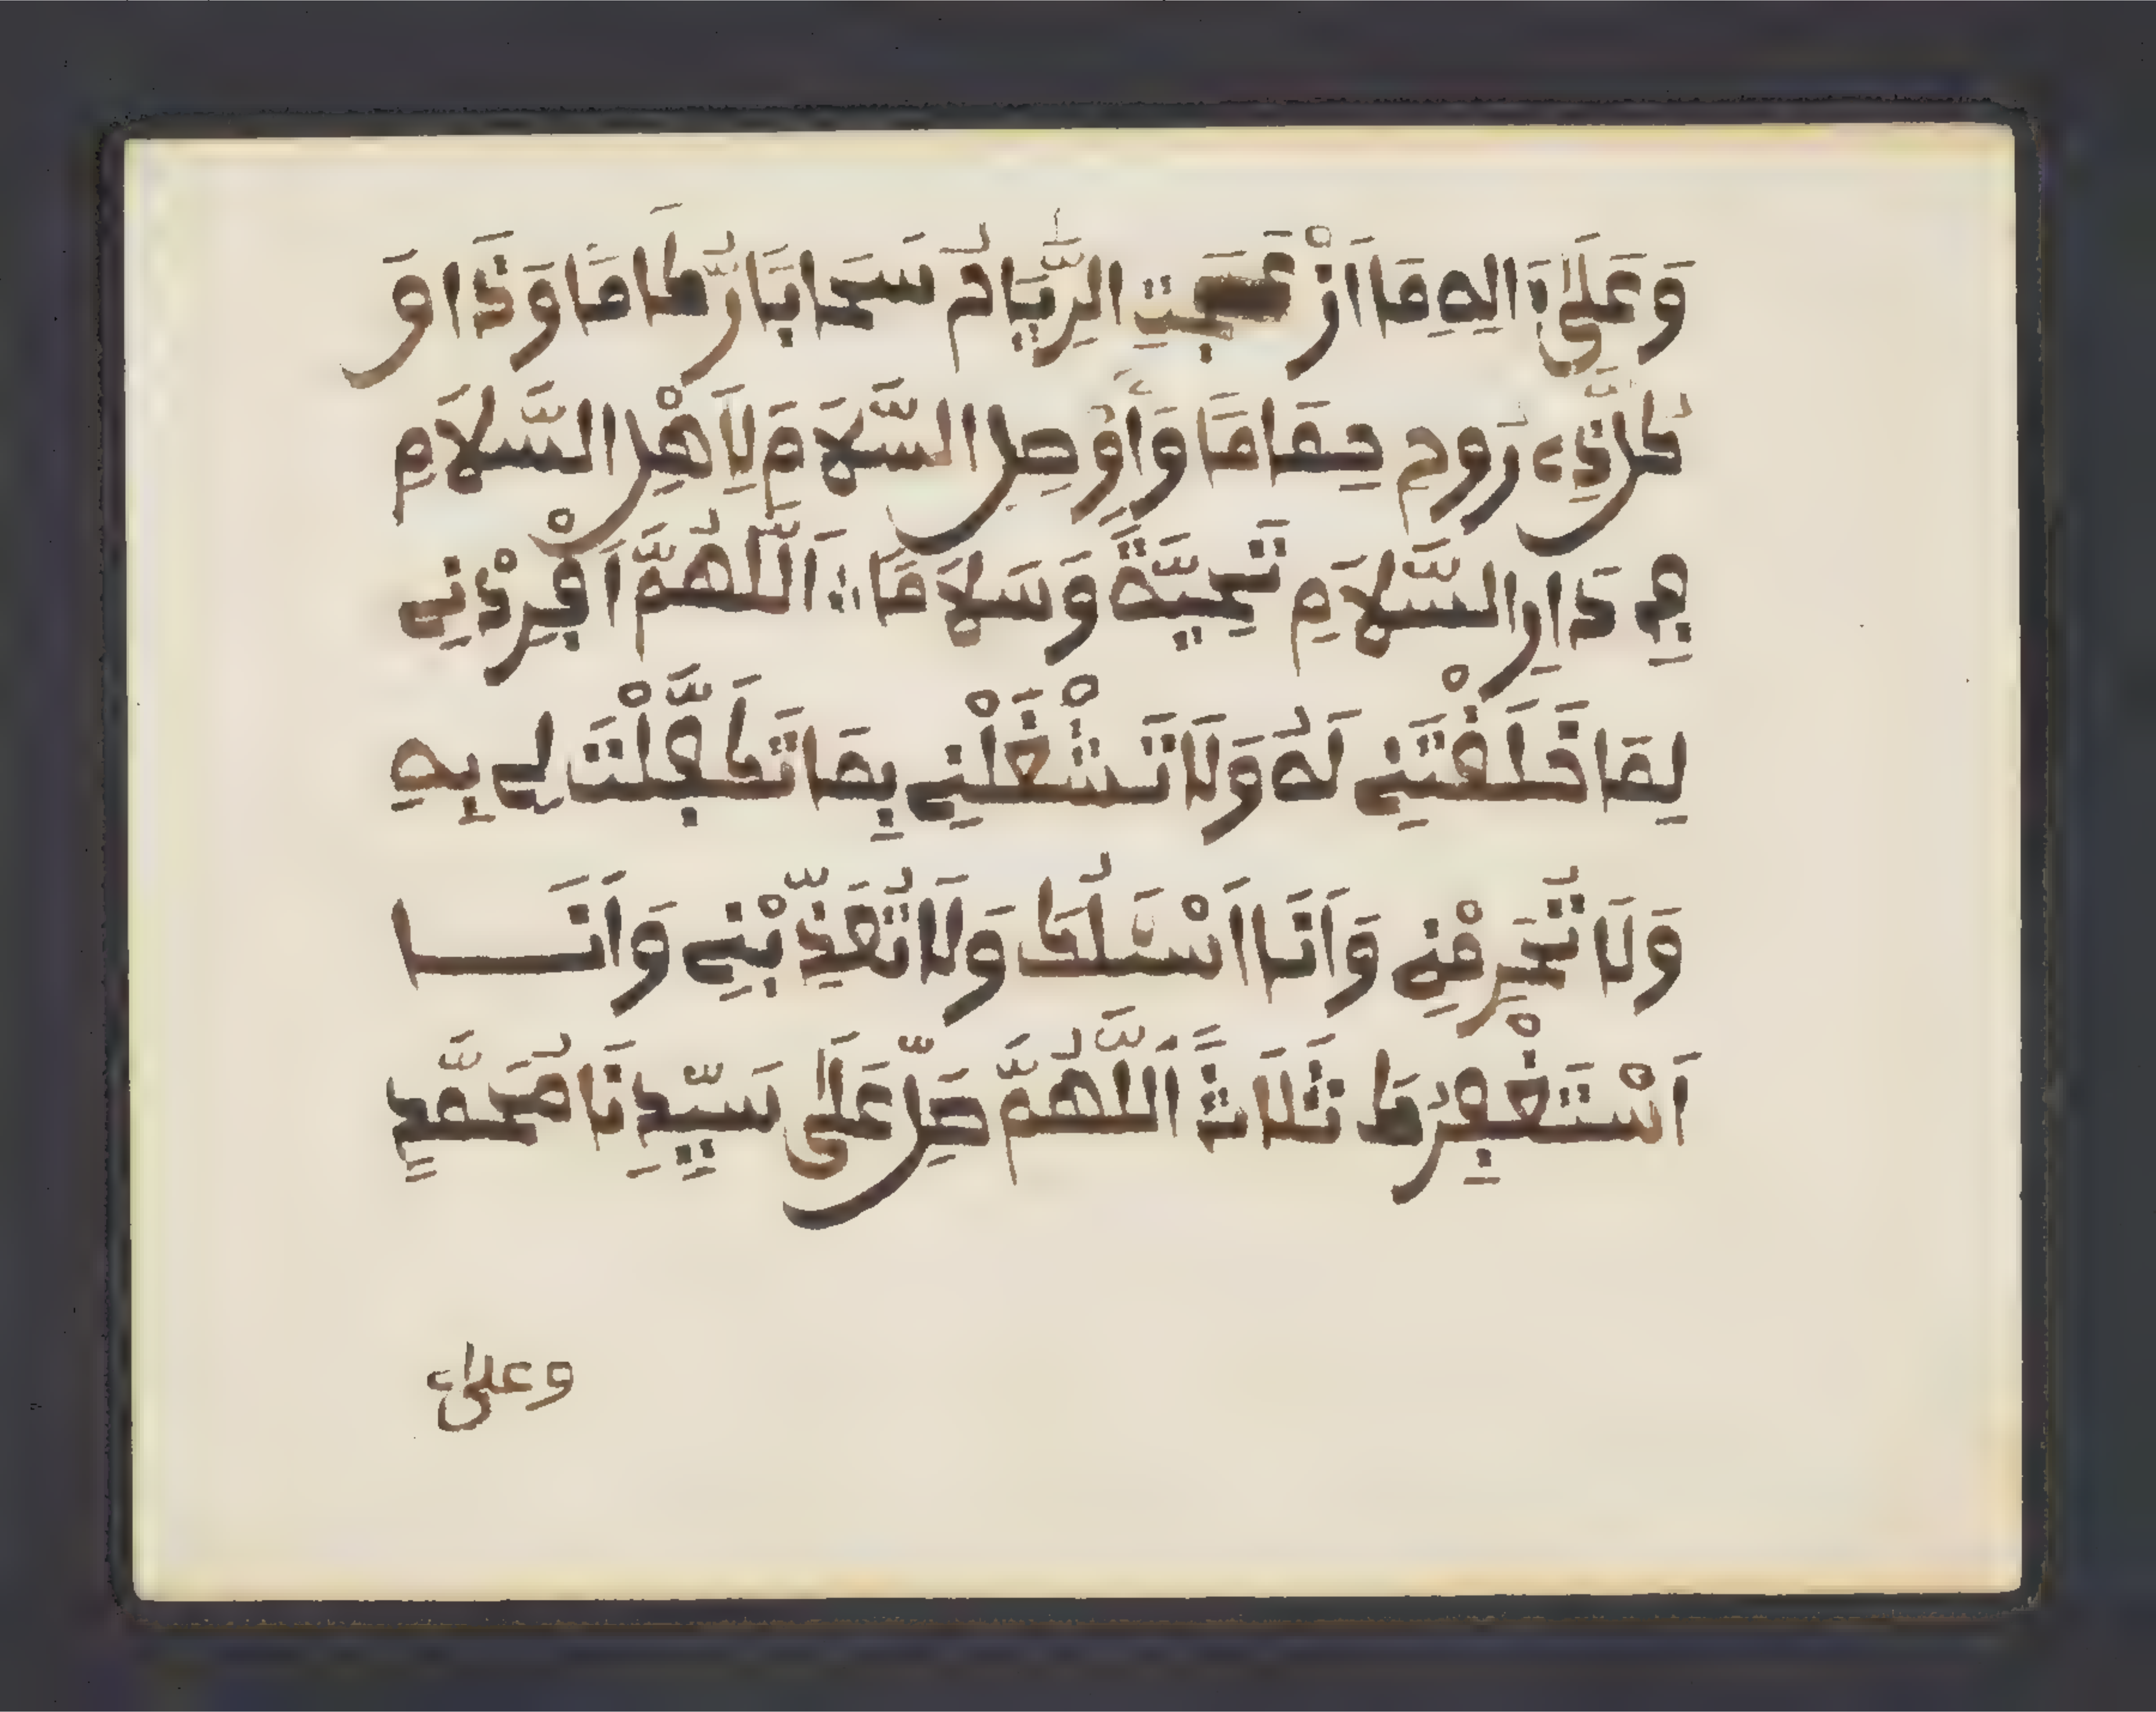 وَعَلَىٰ ءَالِهِ مَا أَزْعَجَتِ الرِّيَاحُ سَحَابًا رُّكَامًا وَذَاقَ
كُلُّ ذِے رُوحٍ حِمَامًا وَأَوْصِلِ السَّلَامَ لِأَهْلِ السَّلَامِ
فِے دَارِ السَّلَامِ تَحِيَّةً وَسَلَامًا ؞ اَللَّهُمَّ أَفْرِدْنِے
لِمَا خَلَقْتَنِے لَهُ وَلَا تَشْغَلْنِے بِمَا تَكَفَّلْتَ لِے بِهِ
وَلَا تُحْرِمْنِے وَأَنَا أَسْـَٔلُكَ وَلَا تُعَذِّبْنِے وَأَنَـــا
أَسْتَغْفِرُكَ ثَلَاثًا اَللَّهُمَّ صَلِّ عَلَىٰ سَيِّدِنَا مُحَمَّدٍ
وعلىٰ ء